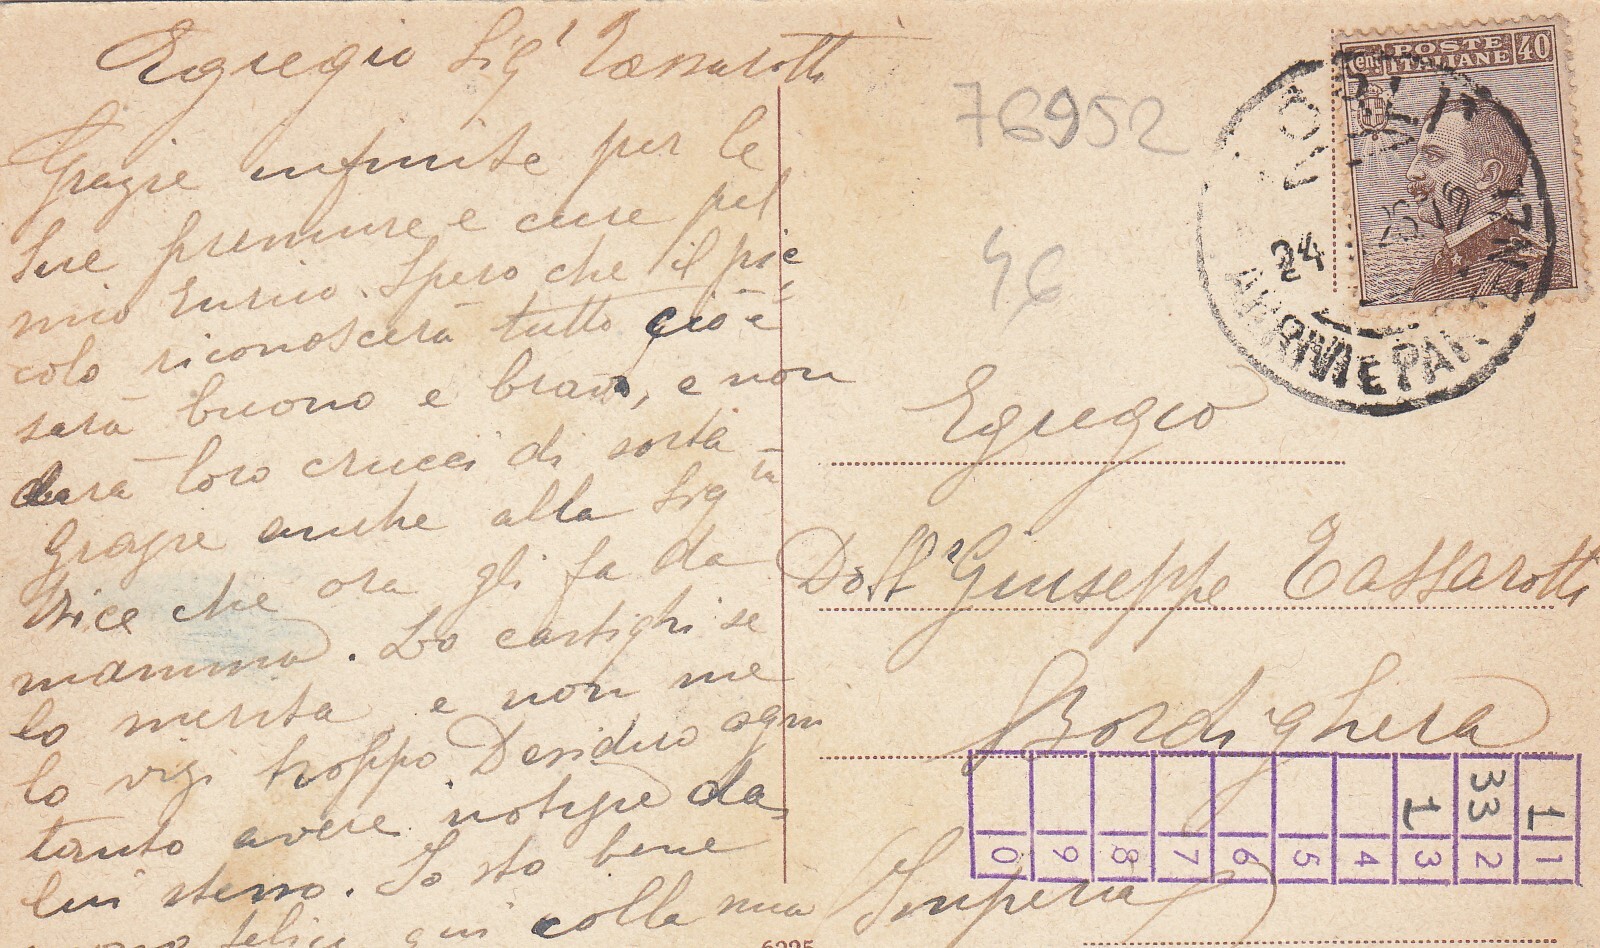 Egregio Sig.r Tassarotti
Grazie infinite per le
sue premure e cure pel
mio Enrico. Spero che il pic
colo riconoscerà tutto ciò e
sarà buono e bravo, e non
darà loro crucci di sorta -
Grazie anche alla Sig.na
che ora gli fa da
mamma. Lo castighi se
lo merita e non me
lo vizi troppo Desidero ogni
tanto avere notizie da
lui stesso. Io sto bene
felice qui colla mia
76952
46
cen. POSTE ITALIANE 40
24
Egregio
Dott. Giuseppe Tassarotti
Bordighera
Imperia
1 33 1
1 2 3 4 5 6 7 8 9 0
6225